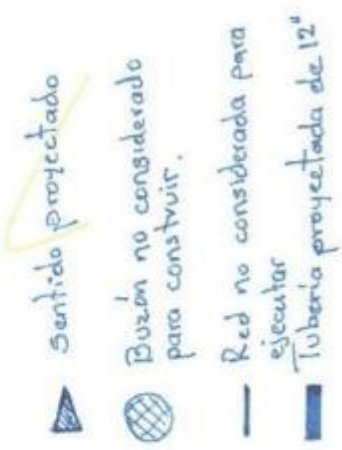 Sentido proyectado
Buzón no considerado
para construir.
Red no considerada para
ejecutar
Tubería proyectada de 12"